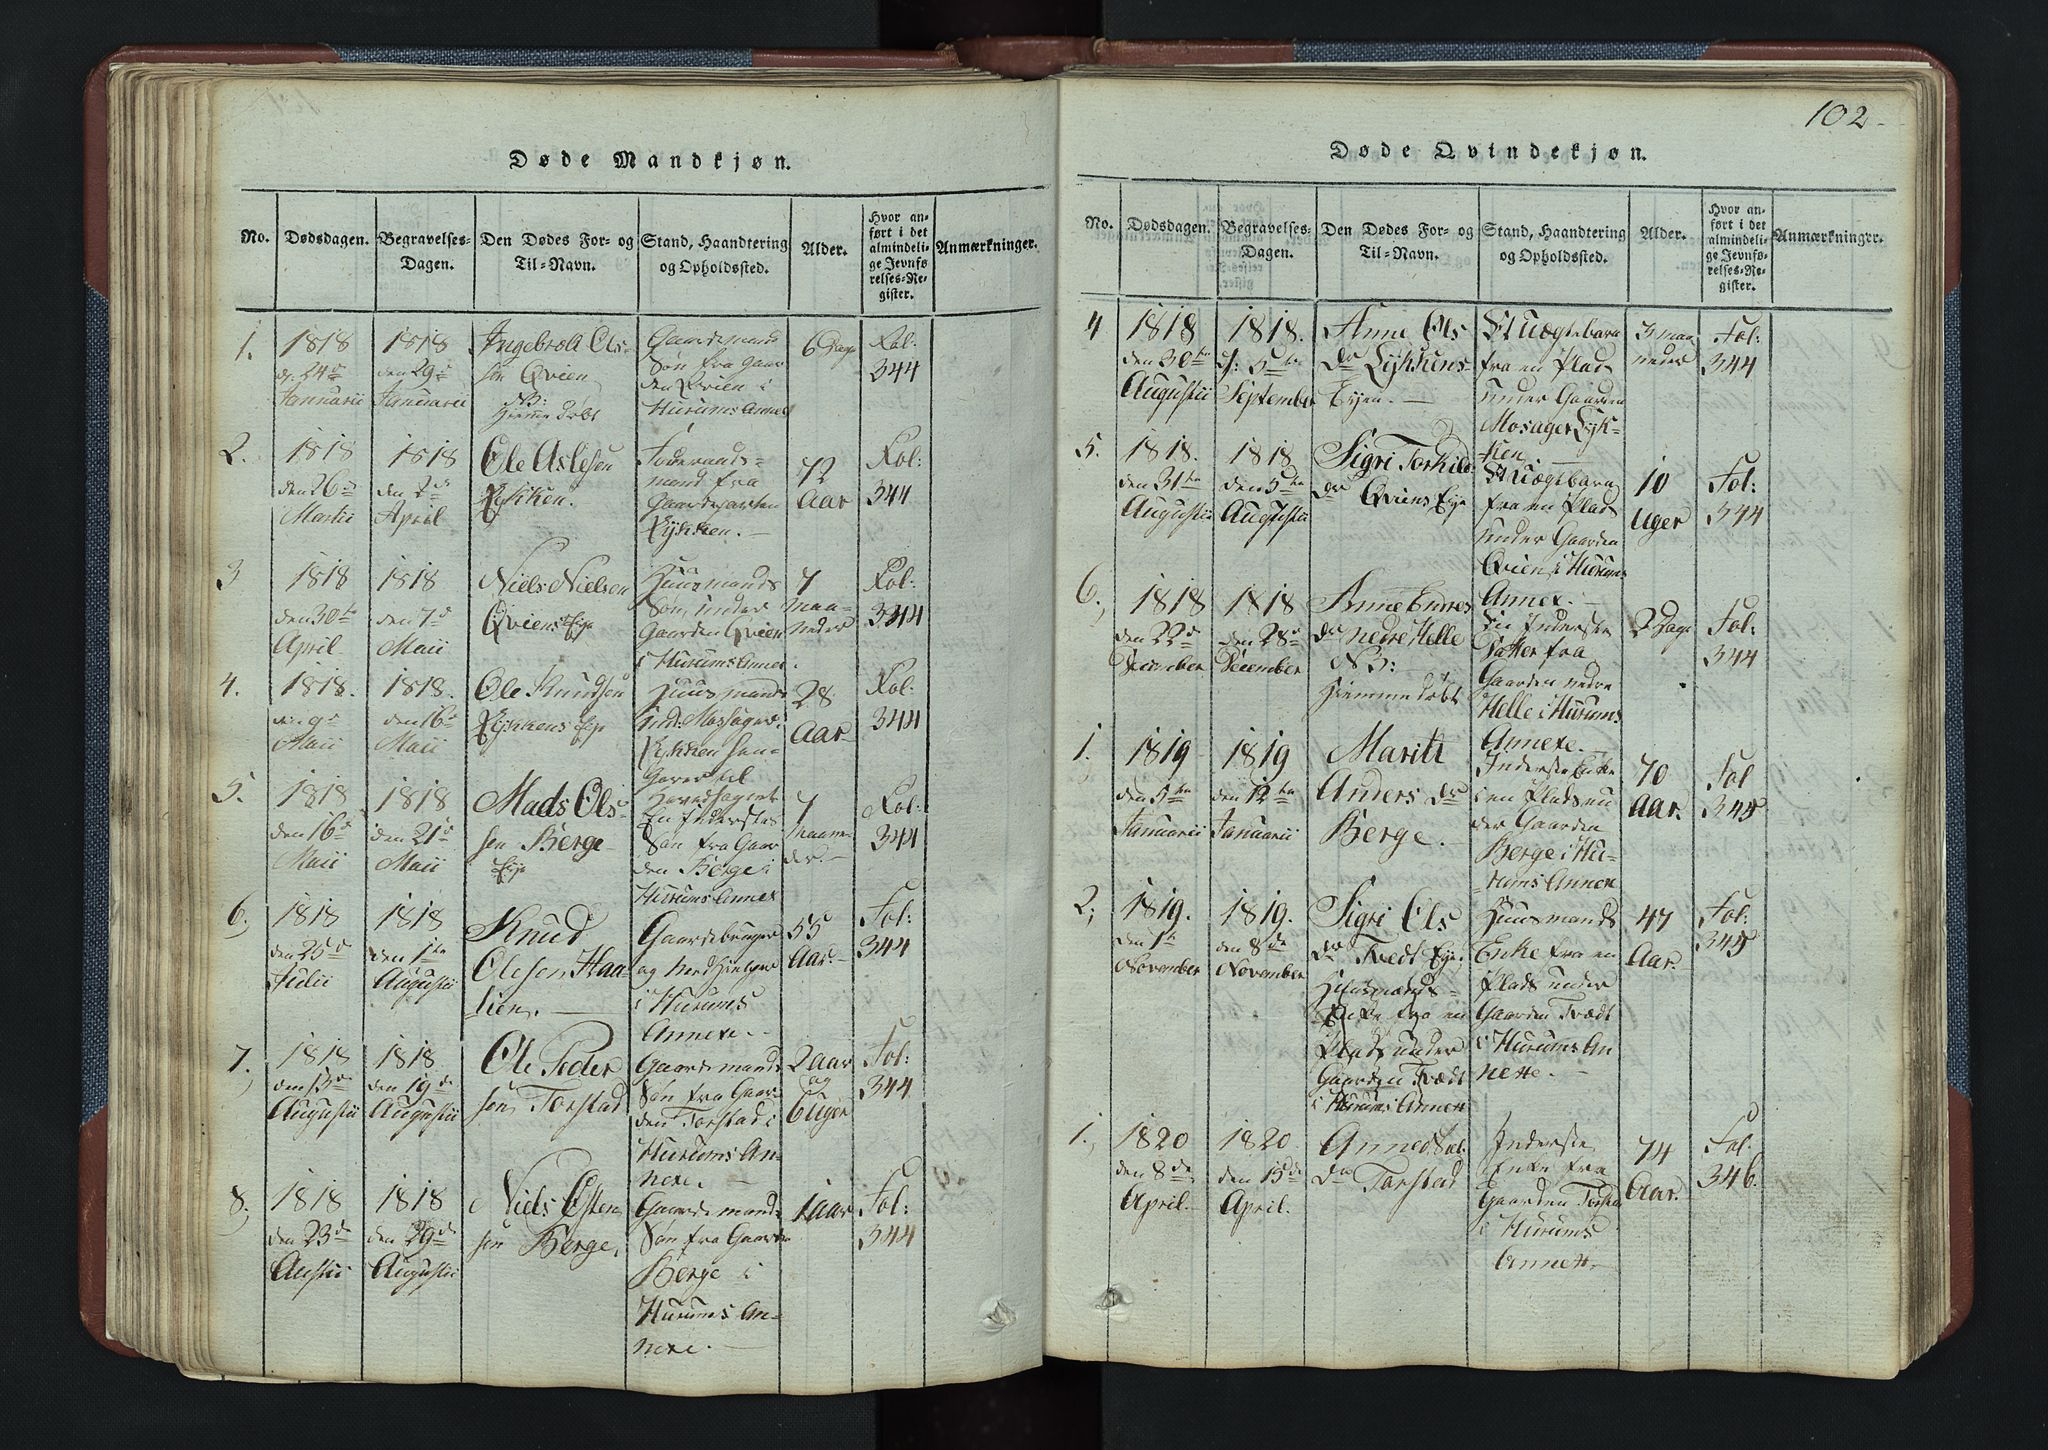 Døde Mandkjøn.
No.
Dødsdagen.
Begravelses-
Dagen.
Den Dødes For- og
Til-Navn.
Stand, Haandtering
og Opholdssted.
Alder.
Hvor an-
ført i det
almindeli-
ge Jevnfø
relses-Re-
gister.
Anmærkninger.
1.
1818
d. 24de
Januarii
1818
den 29de
Januarii
Ingebrott Ols-
sen Qvien
NB:
Hjemme døbt
Gaardemand
Søn fra Gaar
den Qvien i
Hurums Annex
6 Dage
Fol:
344
2.
1818
den 26de
Martii
1818
den 2de
April
Ole Aslesen
Lykken.
Føderaads-
mand fra
Gaardeparten
Lykken.
72
Aar
Fol:
344
3
1818
den 30te
April
1818
den 7de
Maii
Niels Nielsen
Qviens Eje
Huusmands
Søn, under
Gaarden Qvien
i Hurums Annex.
7
Maa-
neder
Fol:
344
4.
1818.
den 9de
Maii
1818.
den 16de
Maii
Ole Knudsen
Lykkens Eje
Huusmand
Lykken
28
Aar
Fol:
344
5.
1818
den 16de
Maii
1818
den 21de
Maii
Mads Ols-
sen Berge
Eje
En Inderstes
Søn fra Gaar
den Berge i
Hurums Annex
7
Maane-
der.
Fol:
344
6,
1818
den 25de
Julii
1818
den 1te
Augustii
Knud
Olesen Haa-
lien.
Gaardebruger
og
i Hurums
Annexe.
55
Aar.
Fol:
344
7.
1818
den 13de
Augustii
1818
den 19de
Augustii
Ole Peder
sen Torstad
Gaardemands
Søn fra Gaar-
den Torstad i
Hurums An-
nexe.
2 aar
og
6 Uger
Fol:
344
8,
1818
den 23de
Austii
1818
den 29de
Augustii
Niels Østen
sen Berge,
Gaardemands
Søn fra Gaarden
Berge i
Hurums An-
nexe.
1 aar
Fol:
344
102
Døde Qvindekjøn.
No.
Dødsdagen
Begravelses-
Dagen.
Den Dødes For- og
Til-Navn.
Stand, Haandtering
og Opholdssted.
Alder.
Hvor an-
ført i det
almindeli-
ge Jevnfø-
relses-Re-
gister.
Anmærkninger.
4
1818
den 30te
Augustii
1818.
d: 5te
September
Anne Ols
Dr Lykkens-
Ejen.
Et Uægtebarn
fra en Plads
under Gaarden
Mosager Lyk-
ken.
3 maa
neder
Fol:
344
5.
1818.
den 31te
Augustii
1818
den 5te
Augustii
Sigri Torkilds
Dr Qviens Eje
Et Uægtebarn
fra en Plads
under Gaarden
Qvien, i Hurums
Annex.
10
Uger
Fol:
344
6.
1818
den 22de
December
1818
den 28de
December
Anne Endres
Dr nedre Helle
NB:
Hjemmedøbt
En Inderste
Datter fra
Gaarden nedre
Helle i Hurums
Annexe.
2 Dage
Fol:
344
1.
1819
den 5te
Januarii
1819
den 12te
Januarii
Maritt
Anders Dr
Berge.
Inderste Enke
i en Plads un
der Gaarden
Berge i Hu-
rums Annex
70
Aar.
Fol
345
2,
1819.
den 1te
November
1819.
den 8de
November
Sigri Ols
Dr Tvedt Eje,
Huusmands-
Enke fra en
Plads under
Gaarden Tvædt
i Hurums Annex
Huusmands
Enke fra en
Plads under
Gaarden Tvædt
i Hurums An
nexe.
47
Aar.
Fol:
345
1.
1820
den 8de
April
1820
den 15de
April.
Dr Torstad
Inderste
Enke fra
Gaarden Torstad
i Hurums
Annex.
74
Aar.
Fol.
346.